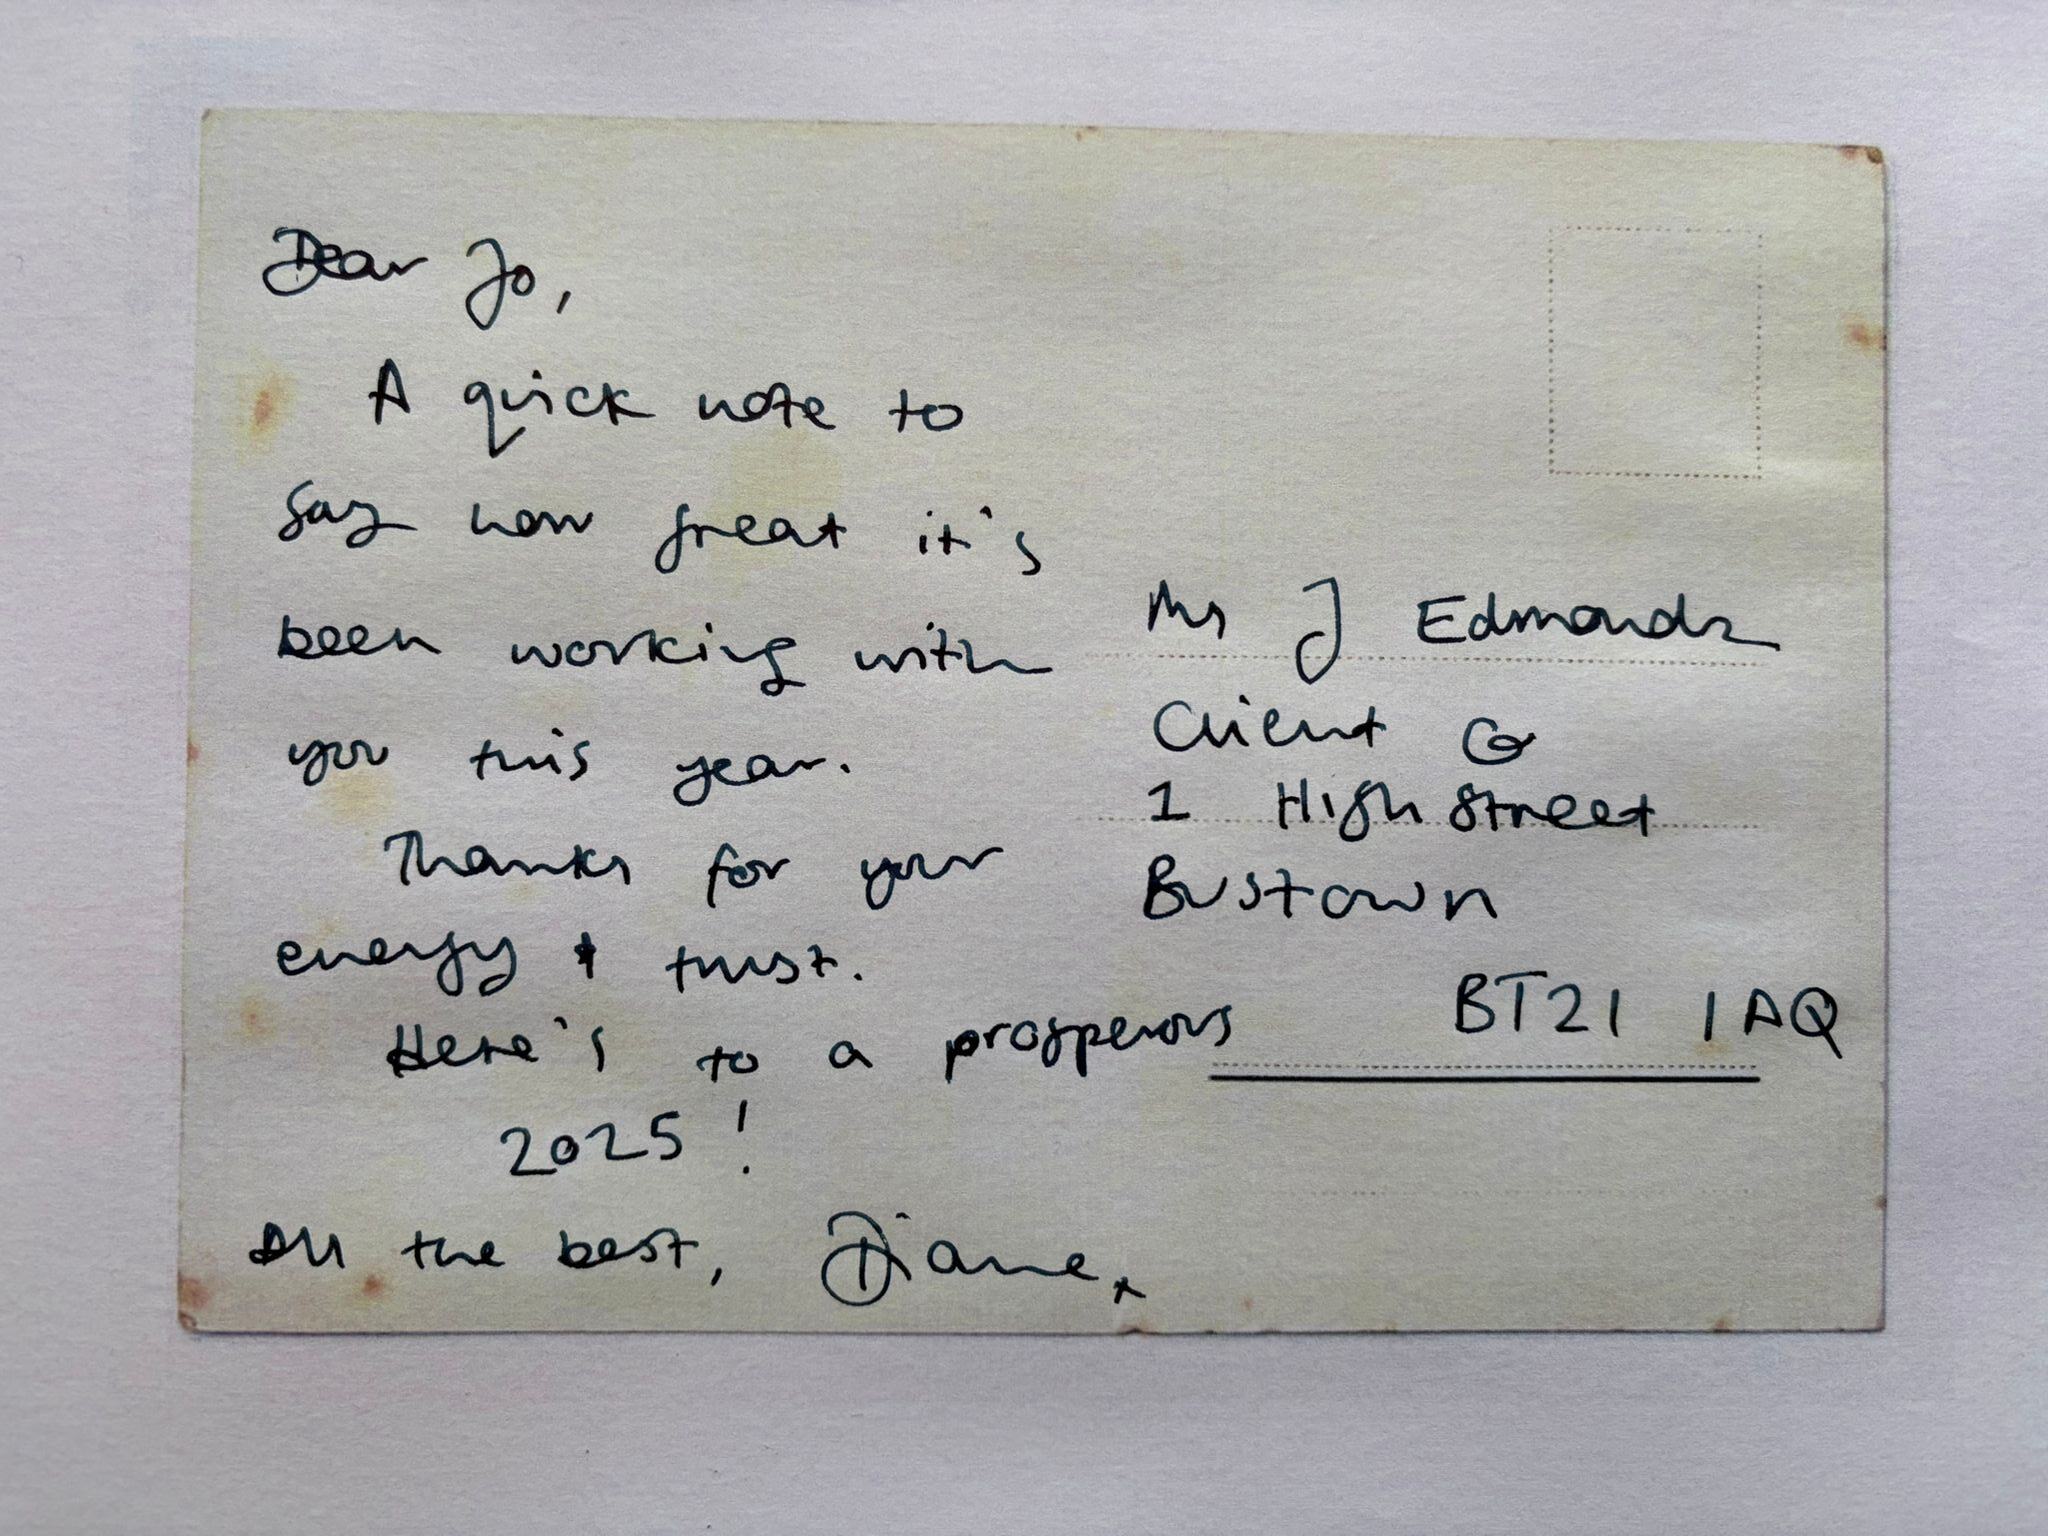 Dear Jo,
A quick note to
say how great it's
been working with
you this year.
Thanks for your
energy & trust.
Here's to a prosperous
2025!
All the best, Diane x
J Edmonds
Client Co
1 High Street
Bustown
BT21 1AQ